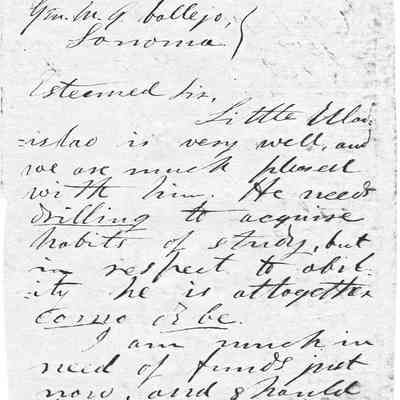 Gen. M. G. Vallejo,
Sonoma
Esteemed Sir,
Little Ula-
-islao is very well, and
we are much pleased
with him. He needs
drilling to acquire
habits of study, but
in respect to abil-
-ity he is altogether
I am much in
need of funds just
now, and should